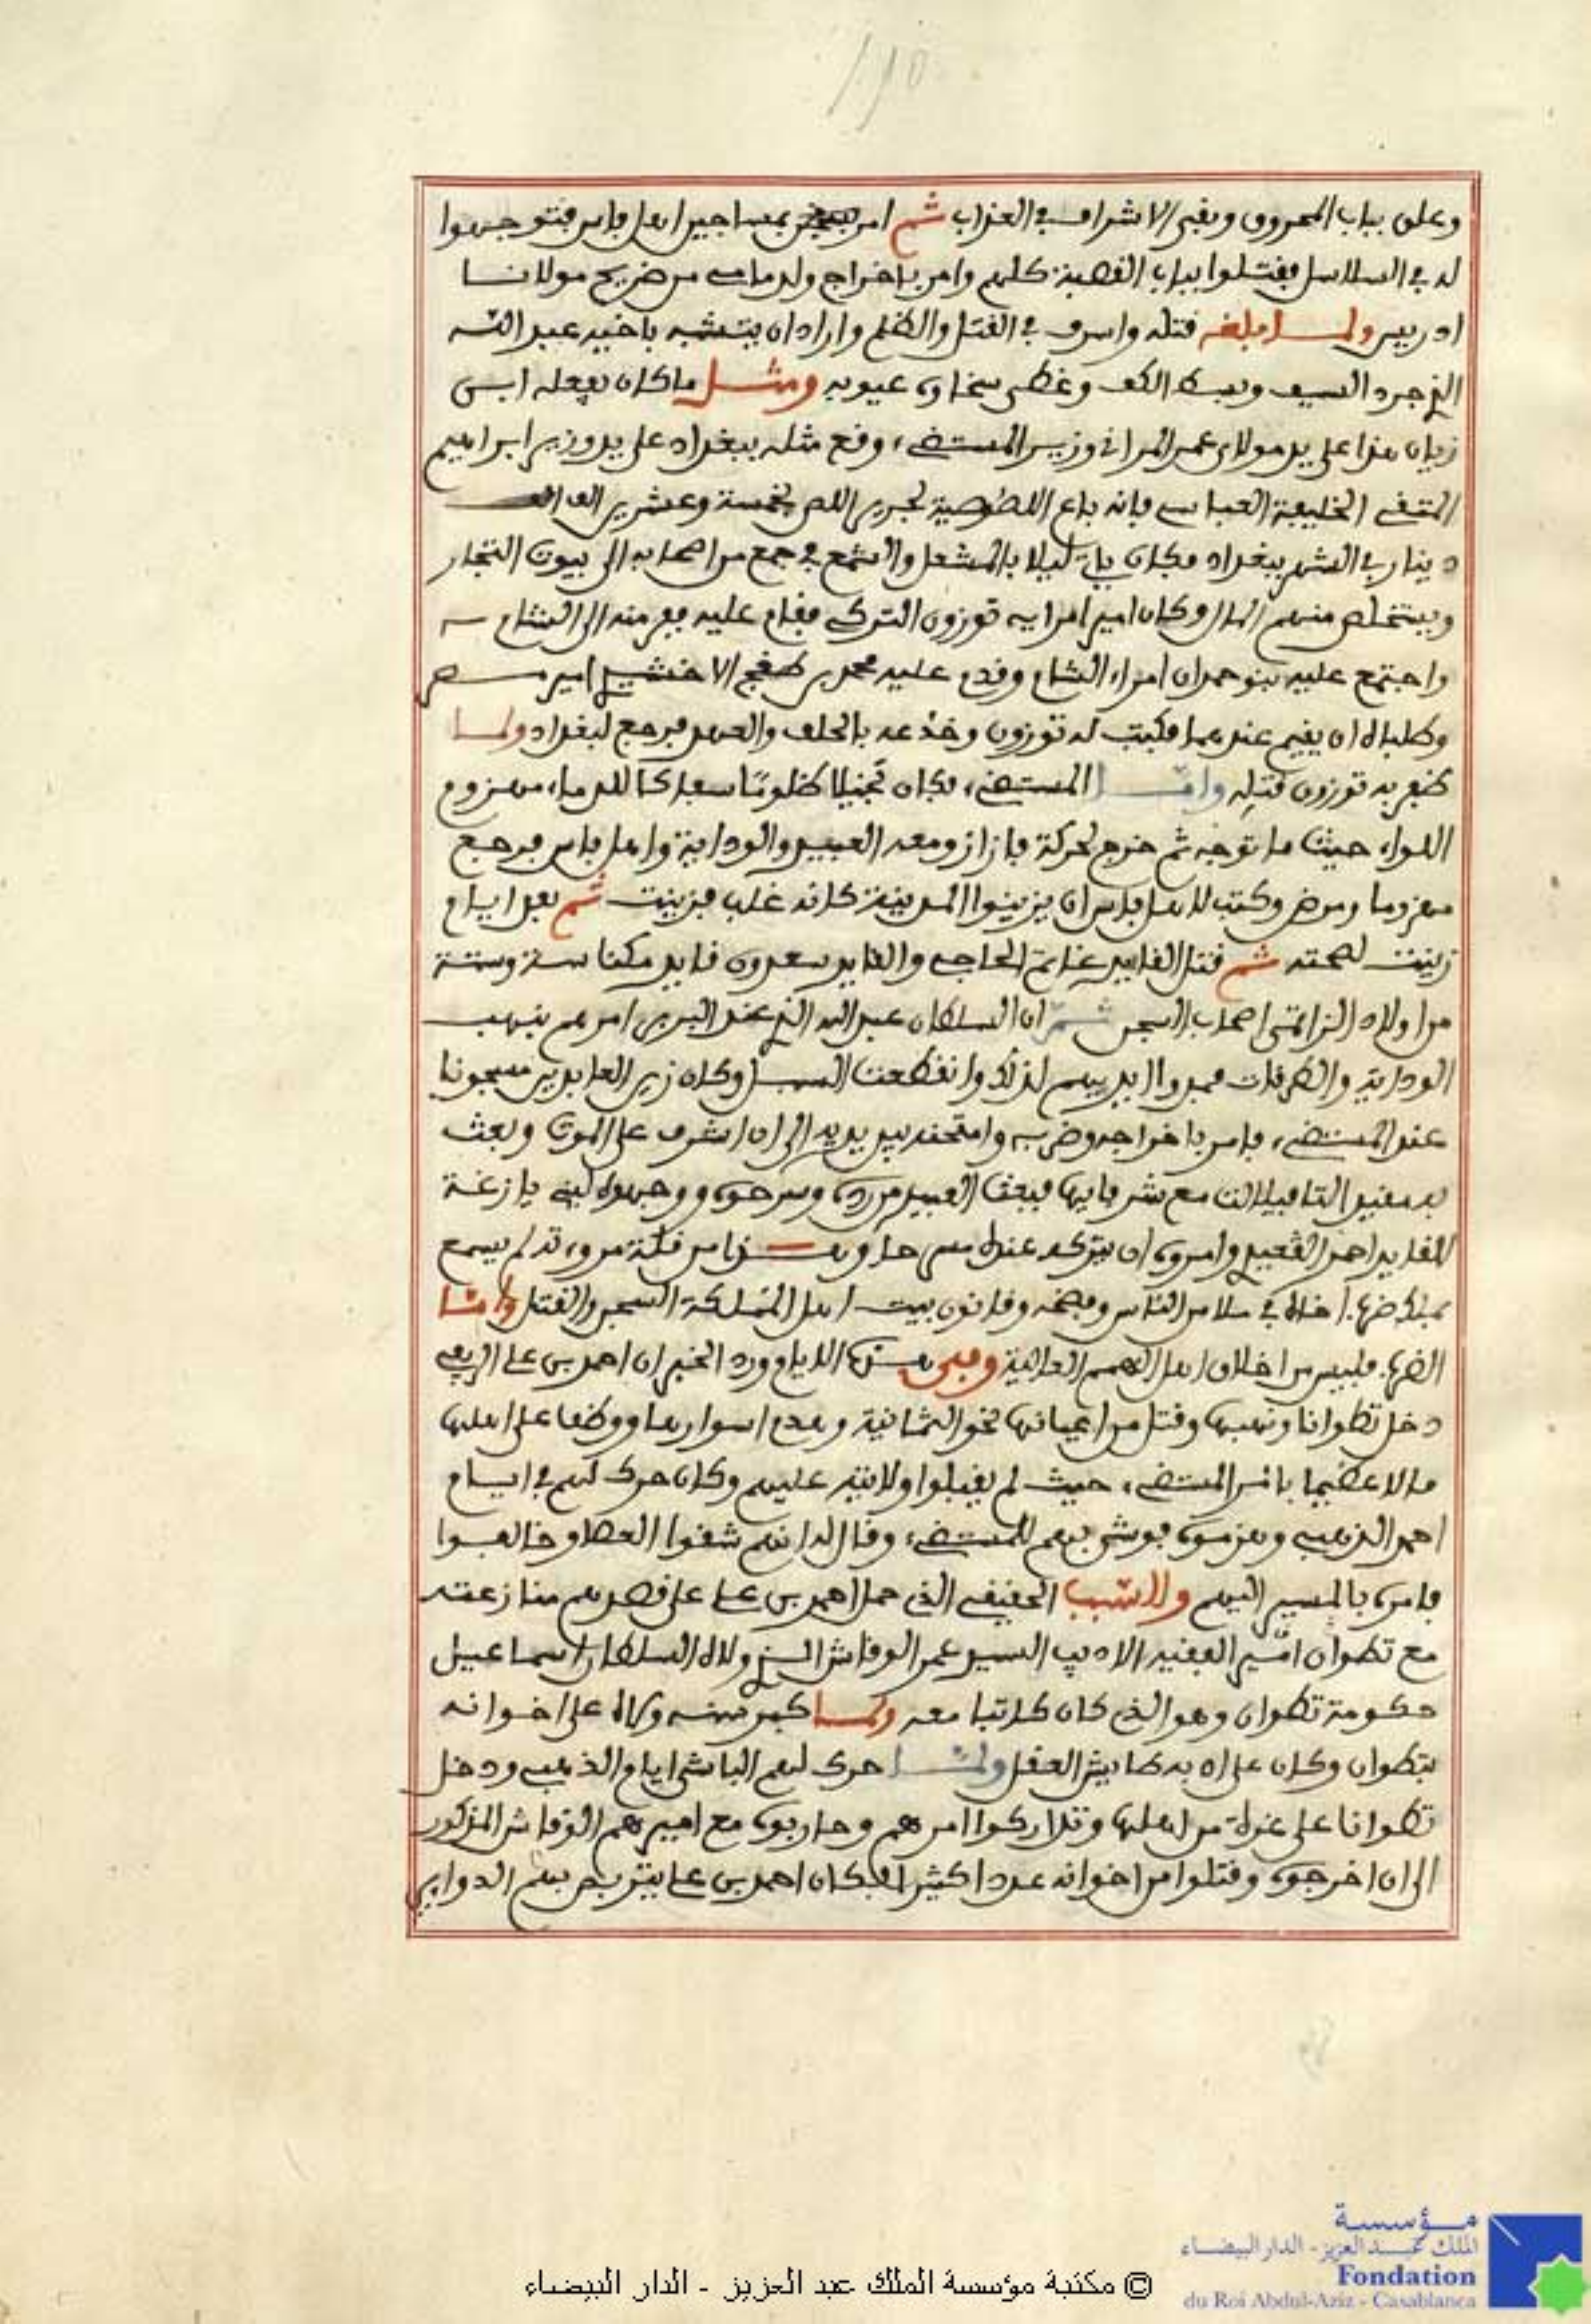 ١٩٥
وعلق بباب المحروق وبقي الاشراف في العذاب ثم امر بمساجين اهل فاس فتوجهوا
له في السلاسل فقتلوا بباب القصبة كلهم وامر باخراج ولد مامي من ضريح مولانا
ادريس ولما قتله واسرف في القتل والظلم واراد ان يتشبه باخيه عبد الله
الذي جرد السيف وبسط الكف وغطى سخاؤه عيوبه ومثل ما كان يفعله ابن
زيان هذا على يد مولاي عمر المراني وزير المستضيء وقع مثله ببغداد على يد وزير ابراهيم
المتقي الخليفة العباسي فانه باع اللصوصية لجرير اللص بخمسة وعشرين الف
دينار في الشهر ببغداد فكان ياتي ليلا بالمشعل والشمع في جمع من اصحابه الى بيوت التجار
ويستخلص منهم المال وكان امير امرايه توزون التركي فقام عليه ففر منه الى الشام
واجتمع عليه بنو حمدان امراء الشام وقدم عليه محمد بن طغج الاخشيد امير مصر
وطلباه ان يقيم عندهما فكتب له توزون وخدعه بالحلف والعهد فرجع لبغداد ولما
ظفر به توزون قتله واما المستضيء فكان بخيلا ظلوما سفاكا للدماء مهزوم
اللواء حيث ما توجه ثم خرج لحركة فازاز ومعه العبيد والوداية واهل فاس فرجع
مهزوما ومرض وكتب لاهل فاس ان يزينوا المدينة كانه غلب فزينت ثم بعد ايام
زينت لصحته ثم قتل القايد غانم الحاجي والقايد سعدون قايد مكناسة وستة
من اولاد اصحاب السجن ثم ان السلطان عبد الله الذي عند البربر امرهم بنهب
الوداية والطرقات فمدوا ايديهم لذلك وانقطعت السبل وكان زين العابدين مسجونا
عند المستضيء فامر باخراجه وضربه وامتحنه بين يديه الى ان اشرف على الموت وبعث
به مقيدا لتافيلالت مع شرفايها فبعث العبيد من رده وسرحوه ووجهوه لبني يازغة
للقايد احمد القعيد وامروه ان يتركه عنده مسرحا وهذا من قلة مروءته لم يسمع
بملك ضرب اخاه في ملا من الناس وفضحه وقانون بيت اهل المملكة السجن والقتل واما
الضرب فليس من اخلاق اهل الهمم العالية وفي هذه الايام ورد الخبر ان احمد بن علي الريفي
دخل تطوانا ونهبها وقتل من اعيانها نحو الثمانية وهدم اسوارها ووظف على اهلها
مالا عظيما بامر المستضيء حيث لم يقبلوا ولايته عليهم وكان حرك لهم في ايام
احمد الذهبي وهزموه فوشى بهم للمستضيء وقال له انهم شقوا العصا وخالفوا
فامره بالمسير اليهم والسبب الحقيقي الذي حمل احمد بن علي على قصدهم منازعته
مع تطوان امير الفقيه الاديب السيد عمر الوقاش الذي ولاه السلطان اسماعيل
حكومة تطوان وهو الذي كان كاتبا معه ولما كبر سنه ولاه على اخوانه
بتطوان وكان على اه به طايش العقل ولما حرك لهم الباشا ايام الذهبي ودخل
تطوانا على غرة من اهلها وتداركوا امرهم وحاربوه مع اميرهم الوقاش المذكور
الى ان اخرجوه وقتلوا من اخوانه عددا كثيرا فكان احمد بن علي يتربص بهم الدواير
مؤسسة
الملك عبد العزيز - الدار البيضاء
Fondation
du Roi Abdul-Aziz - Casablanca
© مكتبة مؤسسة الملك عبد العزيز - الدار البيضاء